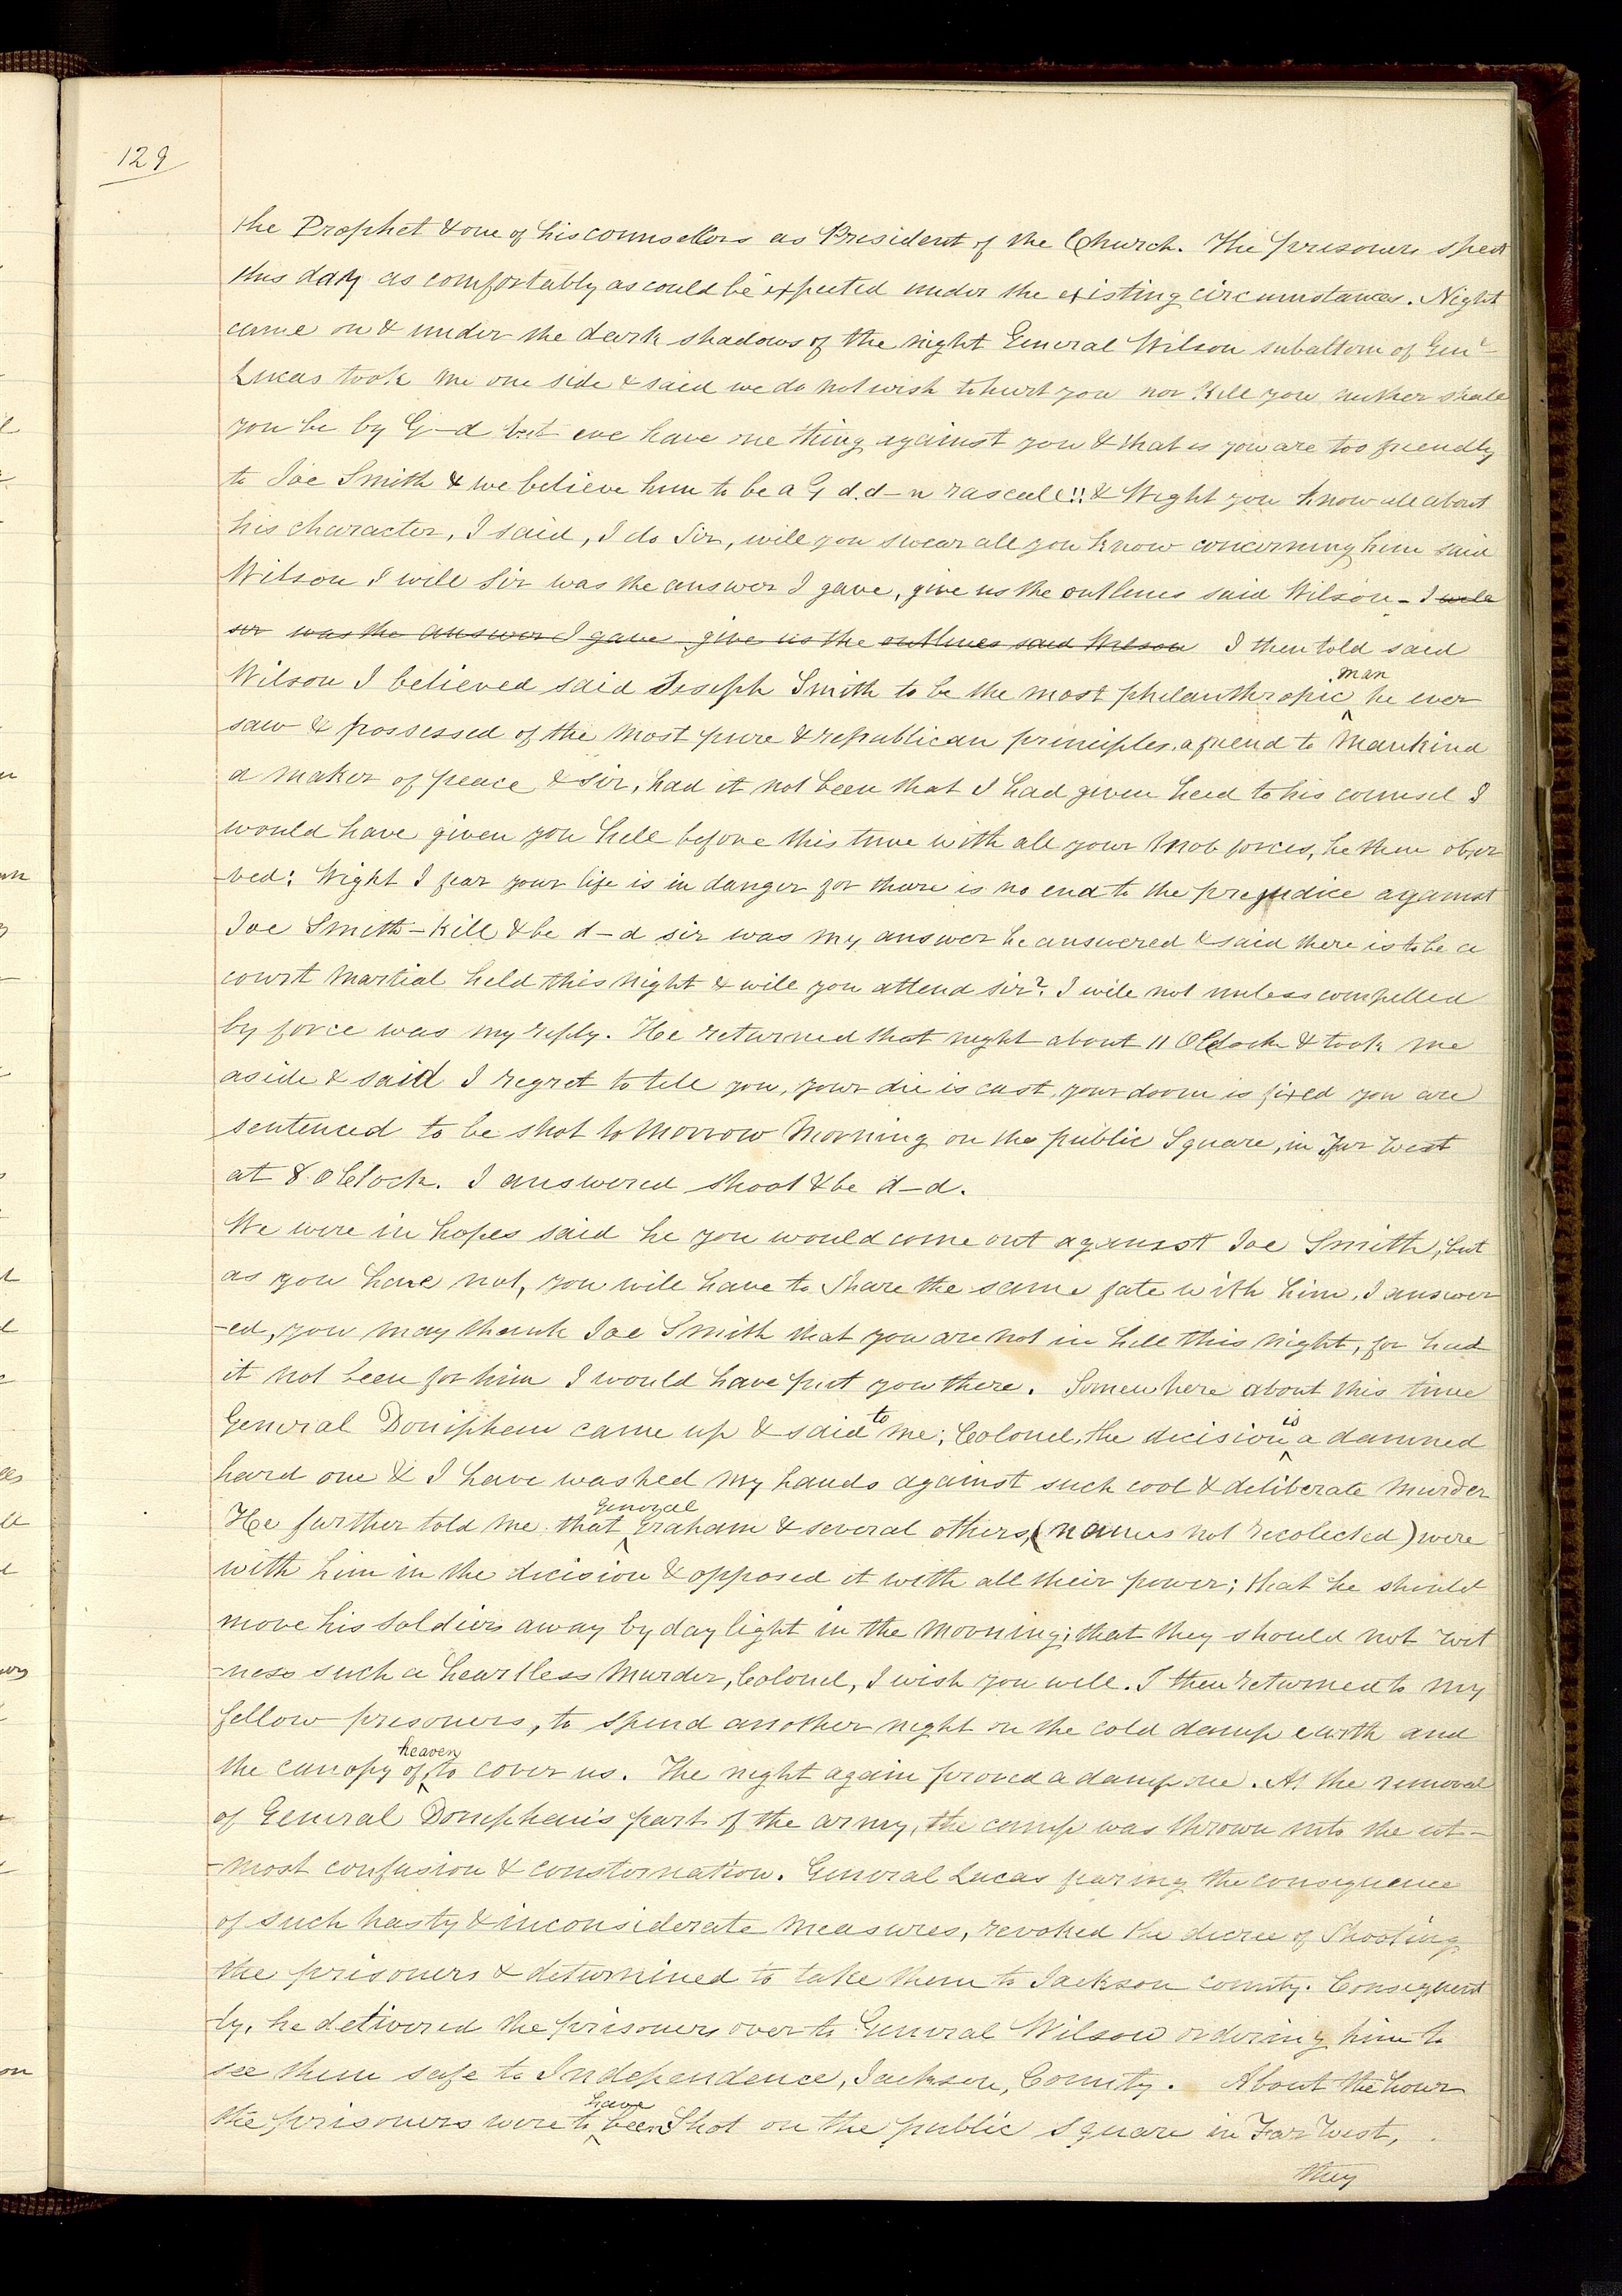 129
the Prophet & one of his counsellors as President of the Church. The prisoners spent
this day as comfortably as could be expected under the existing circumstances. Night
came on & under the dark shadows of the night General Wilson subaltern of Genl
Lucas took me one side & said we do not wish to hurt you nor kill you neither shall
you be by G-d but we have one thing against you & that is you are too friendly
to Joe Smith & we believe him to be a G d. d-n rascal!! & Wight you know all about
his character, I said, I do Sir, will you swear all you know concerning him said
Wilson I will Sir was the answer I gave, give us the outlines said Wilson - I will
sir was the answer I gave give us the outlines said Wilson I then told said
Wilson I believed said Joseph Smith to be the most philanthropic man he ever
saw & possessed of the most pure & republican principles, a friend to Mankind
a maker of peace & sir, had it not been that I had given heed to his counsel I
would have given you hell before this time with all your Mob forces, he then obser
-ved: Wight I fear your life is in danger for there is no end to the prejudice against
Joe Smith - Kill & be d-d sir was my answer he answered & said there is to be a
court Martial held this Night & will you attend sir? I will not unless compelled
by force was my reply. He returned that night about 11 O'Clock & took me
aside & said I regret to tell you, your die is cast, your doom is fixed you are
sentenced to be shot to Morrow Morning on the public Square, in Far West
at 8 O'Clock. I answered shoot & be d-d.
We were in hopes said he you would come out against Joe Smith, but
as you have not, you will have to Share the same fate with him, I answer
-ed, you may thank Joe Smith that you are not in hell this night, for had
it not been for him I would have put you there. Somewhere about this time
General Doniphan came up & said to me; Colonel, the decision is a damned
hard one & I have washed my hands against such cool & deliberate Murder
He further told me that General Graham & several others, (names not recolected) were
with him in the decision & opposed it with all their power; that he should
move his Soldiers away by day light in the Morning; that they should not wit
-ness such a heartless Murder, Colonel, I wish you well. I then returned to my
fellow prisoners, to spend another night on the cold damp earth and
the canopy of heaven to cover us. The night again proved a damp one. At the removal
of General Doniphan's part of the army, the camp was thrown into the ut-
-most confusion & consternation. General Lucas fearing the consequence
of such hasty & inconsiderate Measures, revoked the decree of Shooting
the prisoners & determined to take them to Jackson county. Consequent
-ly, he delivered the prisoners over to General Wilson ordering him to
see them safe to Independence, Jackson, County. About the hour
the prisoners were to have been Shot on the public Square in Far West,
they